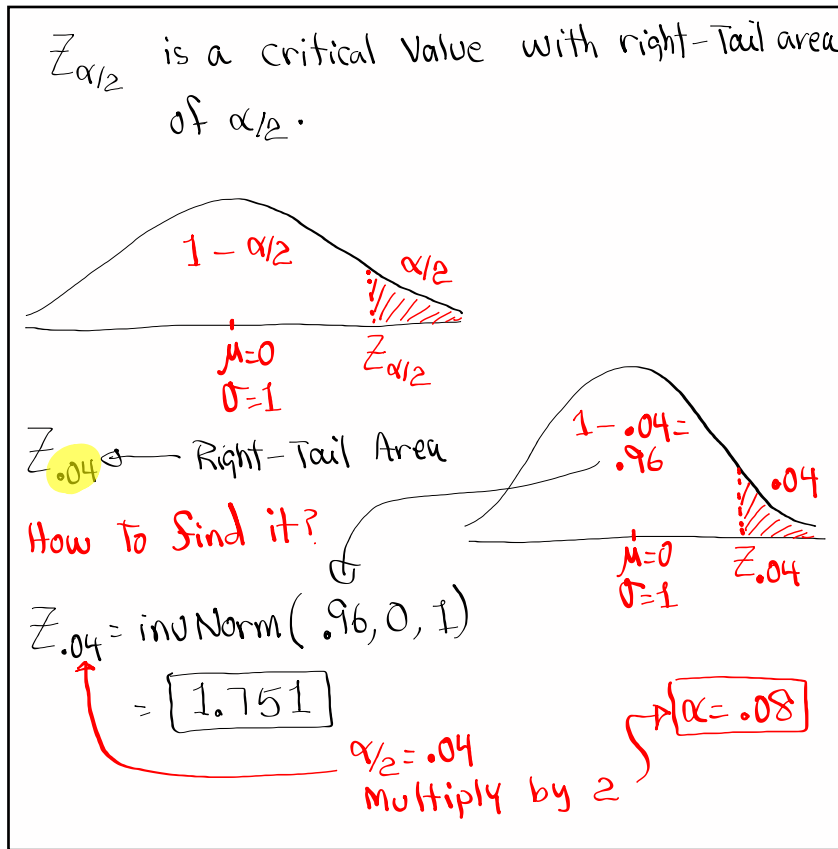 Z_α/2 is a critical Value with right-Tail area
of α/2.
1 - α/2
α/2
μ=0
σ=1
Z_α/2
Z_.04 ← Right-Tail Area
1 - .04=
.96
.04
μ=0
σ=1
Z_.04
How To find it?
Z_.04 = invNorm(.96, 0, 1)
= 1.751
α/2 = .04
Multiply by 2
α = .08